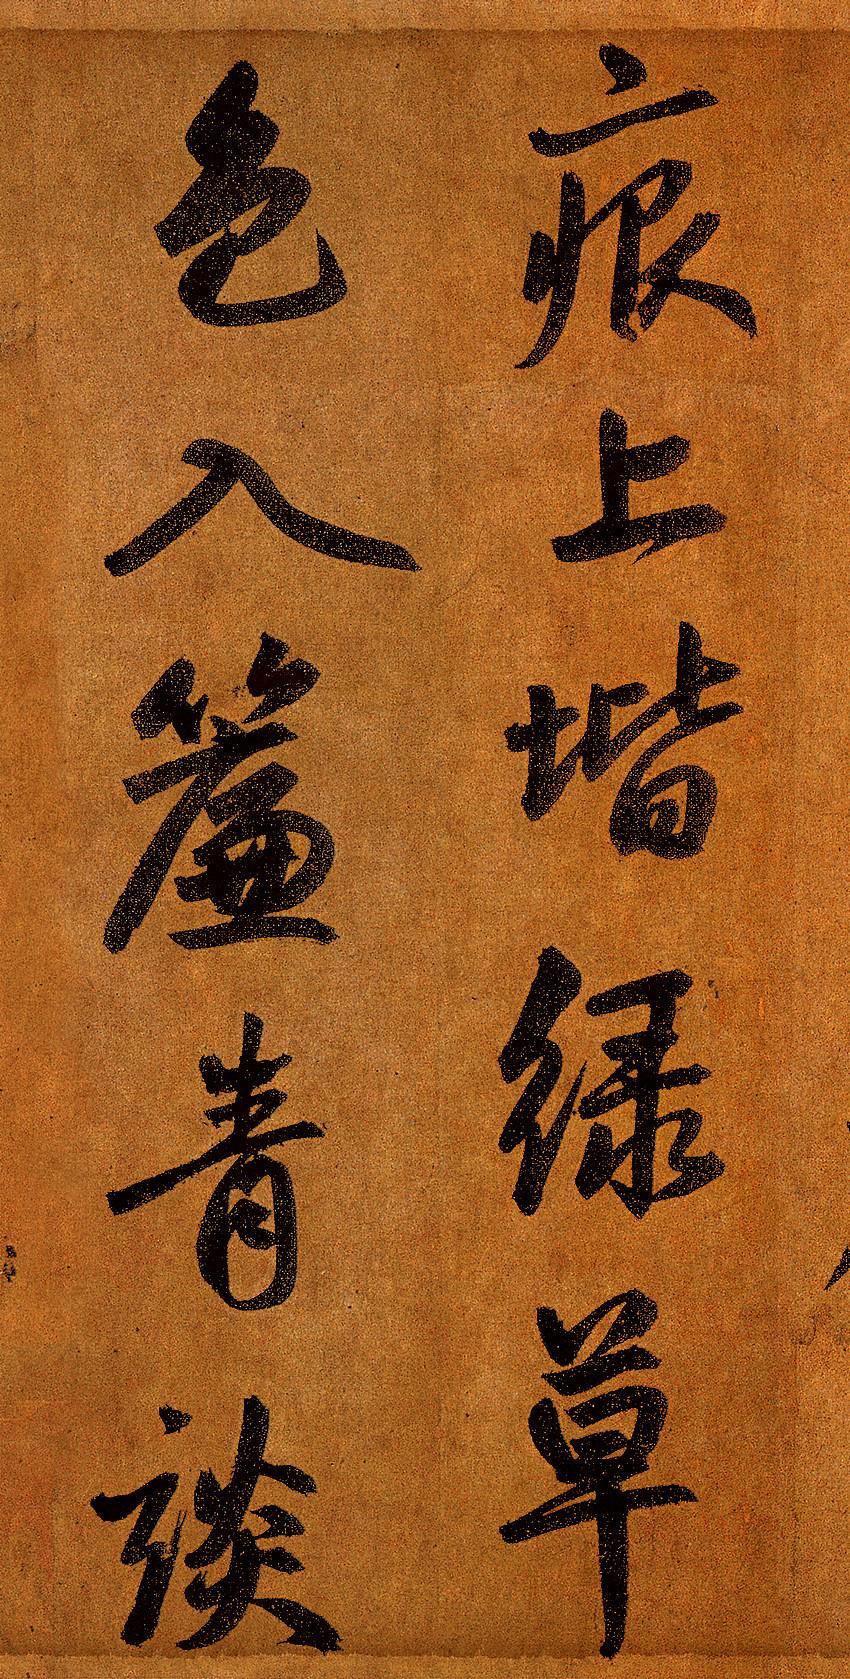 痕上堦绿草
色入簾青談